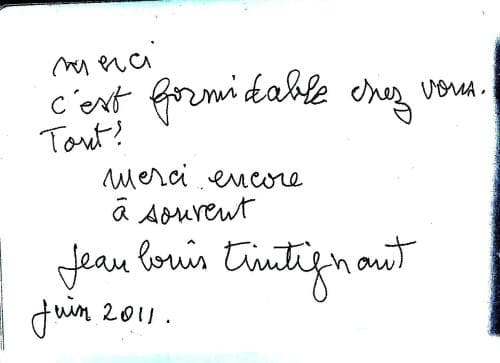 merci
c'est formidable chez vous.
Tout!
merci encore
à souvent
Jean louis trintignant
juin 2011.